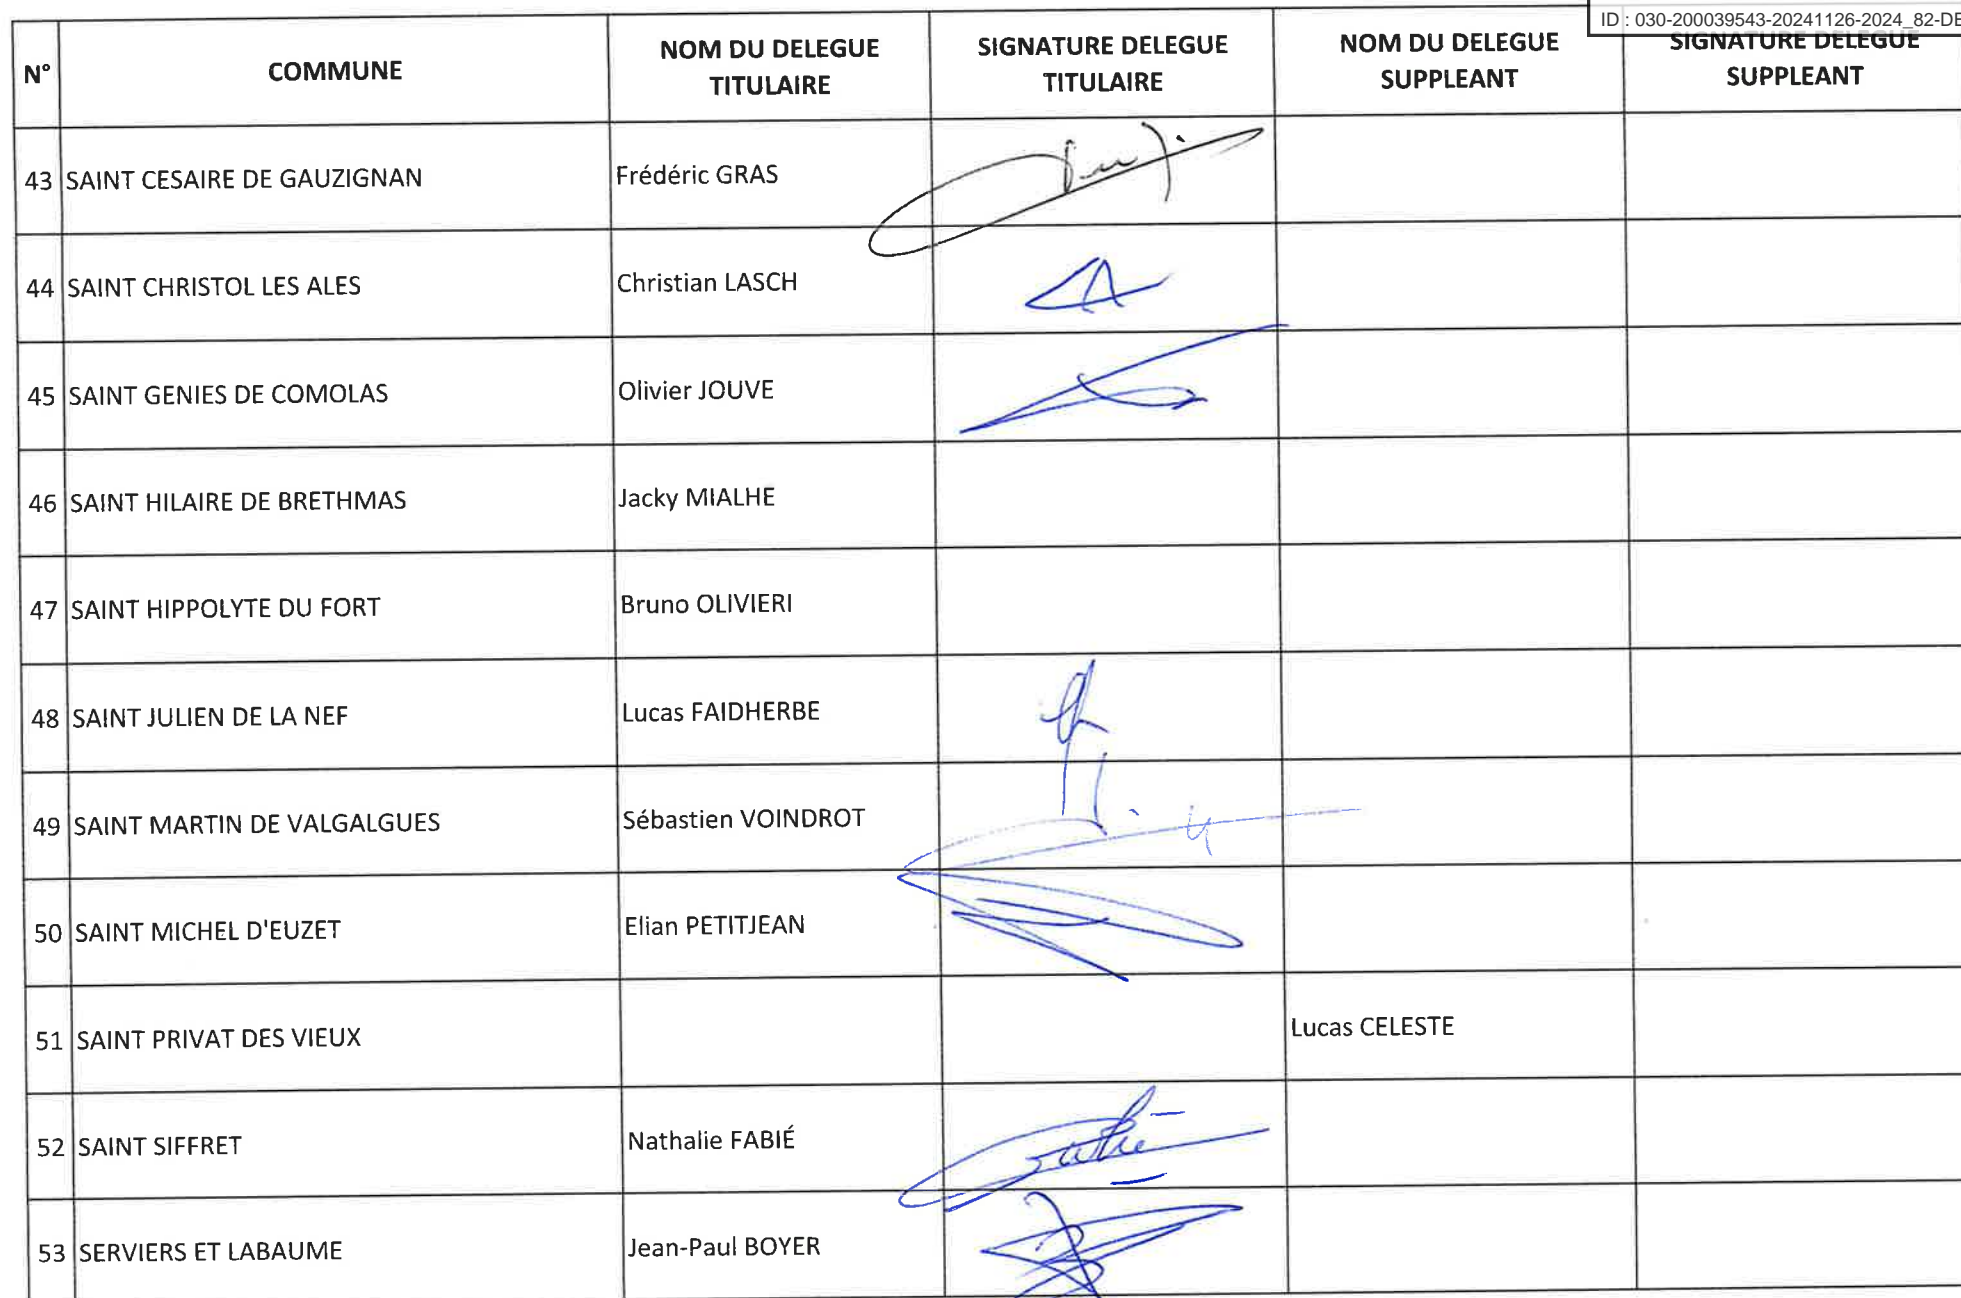 ID : 030-200039543-20241126-2024_82-DE
N°
COMMUNE
NOM DU DELEGUE
TITULAIRE
SIGNATURE DELEGUE
TITULAIRE
NOM DU DELEGUE
SUPPLEANT
SIGNATURE DELEGUE
SUPPLEANT
43 SAINT CESAIRE DE GAUZIGNAN Frédéric GRAS
44 SAINT CHRISTOL LES ALES Christian LASCH
45 SAINT GENIES DE COMOLAS Olivier JOUVE
46 SAINT HILAIRE DE BRETHMAS Jacky MIALHE
47 SAINT HIPPOLYTE DU FORT Bruno OLIVIERI
48 SAINT JULIEN DE LA NEF Lucas FAIDHERBE
49 SAINT MARTIN DE VALGALGUES Sébastien VOINDROT
50 SAINT MICHEL D'EUZET Elian PETITJEAN
51 SAINT PRIVAT DES VIEUX Lucas CELESTE
52 SAINT SIFFRET Nathalie FABIÉ
53 SERVIERS ET LABAUME Jean-Paul BOYER